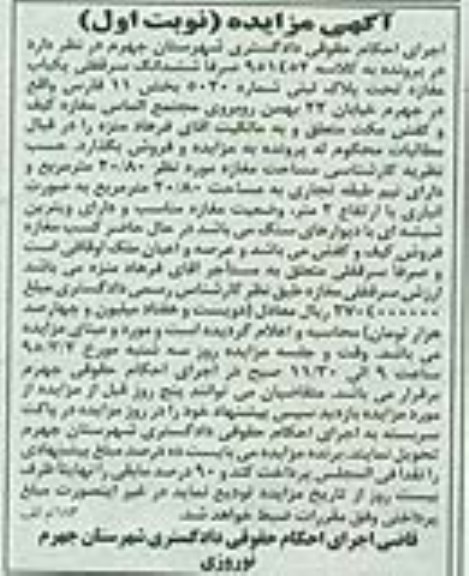 آگهی مزایده (نوبت اول)
اجرای احکام حقوقی دادگستری شهرستان جهرم در نظر دارد
در پرونده به کلاسه ۹۵۱۴۵۲ صرفا ششدانگ سرقفلی یکباب
مغازه تحت پلاک ثبتی شماره ۵۰۲۰ بخش ۱۱ فارس واقع
در جهرم خیابان ۲۲ بهمن روبروی مجتمع الماس مغازه کیف
و کفش مکث متعلق و به مالکیت آقای فرهاد منزه را در قبال
مطالبات محکوم له پرونده به مزایده و فروش بگذارد. حسب
نظریه کارشناسی مساحت مغازه مورد نظر ۲۰/۸۰ مترمربع و
دارای نیم طبقه تجاری به مساحت ۲۰/۸۰ مترمربع به صورت
انباری با ارتفاع ۲ متر، وضعیت مغازه مناسب و دارای ویترین
شیشه ای با دیوارهای سنگ می باشد در حال حاضر کسب مغازه
فروش کیف و کفش می باشد و عرصه و اعیان ملک اوقافی است
و صرفا سرقفلی متعلق به مستأجر آقای فرهاد منزه می باشد
ارزش سرقفلی مغازه طبق نظر کارشناس رسمی دادگستری مبلغ
۲۷۰۴۰۰۰۰۰۰ ریال معادل (دویست و هفتاد میلیون و چهارصد
هزار تومان) محاسبه و اعلام گردیده است و مورد و مبنای مزایده
می باشد. وقت و جلسه مزایده روز سه شنبه مورخ ۹۵/۳/۴
ساعت ۹ الی ۱۱/۳۰ صبح در اجرای احکام حقوقی جهرم
برقرار می باشد. متقاضیان می توانند پنج روز قبل از مزایده از
مورد مزایده بازدید سپس پیشنهاد خود را در روز مزایده در پاکت
سربسته به اجرای احکام حقوقی دادگستری شهرستان جهرم
تحویل نمایند. برنده مزایده می بایست ده درصد مبلغ پیشنهادی
را نقدا فی المجلس پرداخت کند و ۹۰ درصد مابقی را نهایتا ظرف
بیست روز از تاریخ مزایده تودیع نماید در غیر اینصورت مبلغ
پرداختی وفق مقررات ضبط خواهد شد.
قاضی اجرای احکام حقوقی دادگستری شهرستان جهرم
نوروزی